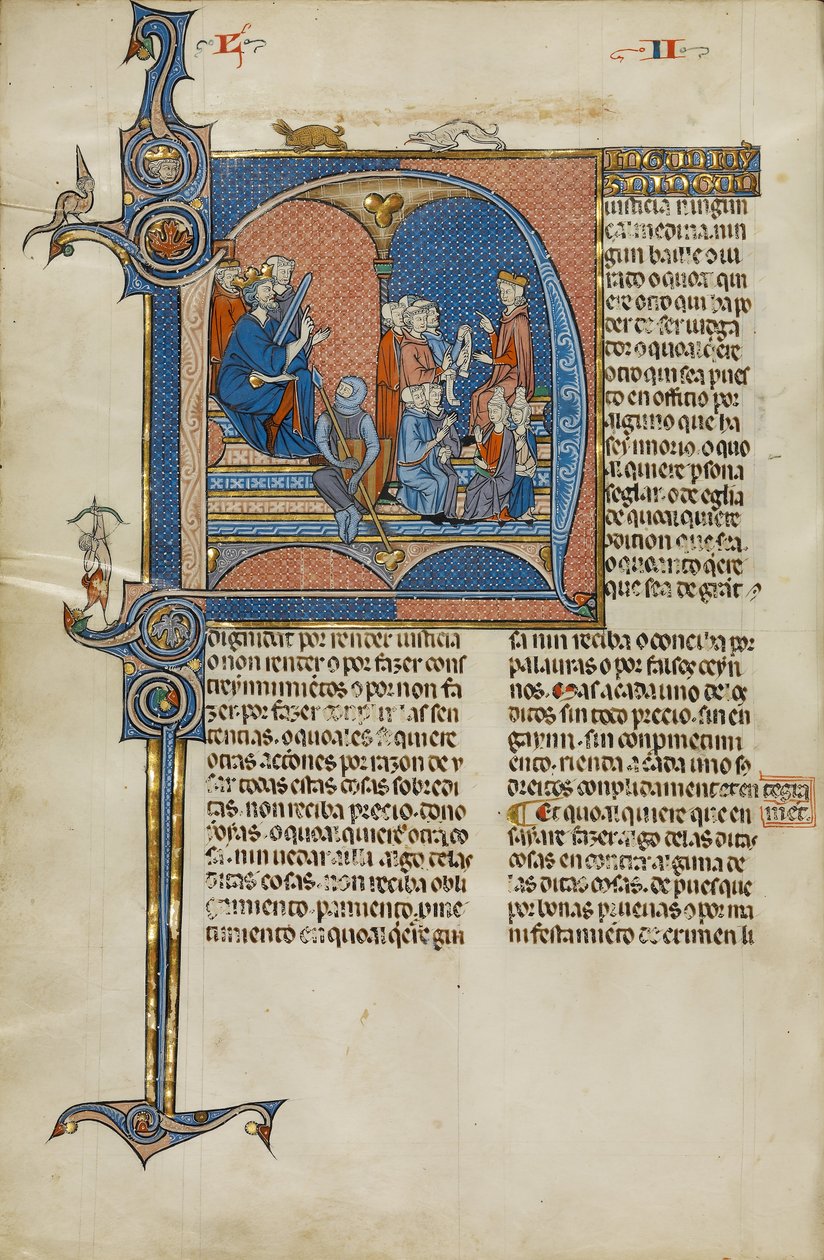 L II
INGUN IUY
Z NINGUN
iusticia ningun
çalmedina nin
gun baille o iu
rado o quoal qui
ere otro qui ha po
der de ser iudga
dor o quoal q̃ere
otro qui sea pues
to en offitio por
alguno que ha
seynnorio. o quo
al quiere p̃sona
seglar. o de eglia
de quoal quiere
ɔdition que sea.
o quanto q̃ere
que sea de grãt
dignidat por render iusticia
o non render o por fazer cons
treynnimiẽtos o por non fa
zer. por fazer conplir las sen
tencias. o quoales se quiere
otras actiones por razon de y
sar todas estas cosas sobredi
tas. non reciba precio. dono
ioyas. o quoal quiere otra co
sa. nin uedar alli algo de las
ditas cosas. non reciba obli
gamiento. pamiento. p̃me
timiento en quoal q̃ere gui
sa nin reciba o conciba por
palauras o por falsos ceyn
nos. Mas a cada uno de los
ditos sin todo precio. sin en
gaynn. sin conpmetimi
ento. rienda a cada uno so
dreitos conplidament et en tegra
mẽt.
Et quoal quiere que en
sayare fazer algo de las ditas
cosas en contra alguna de
las ditas cosas. de pues que
por bonas prueuas o por ma
nifestamiẽto de crimen li